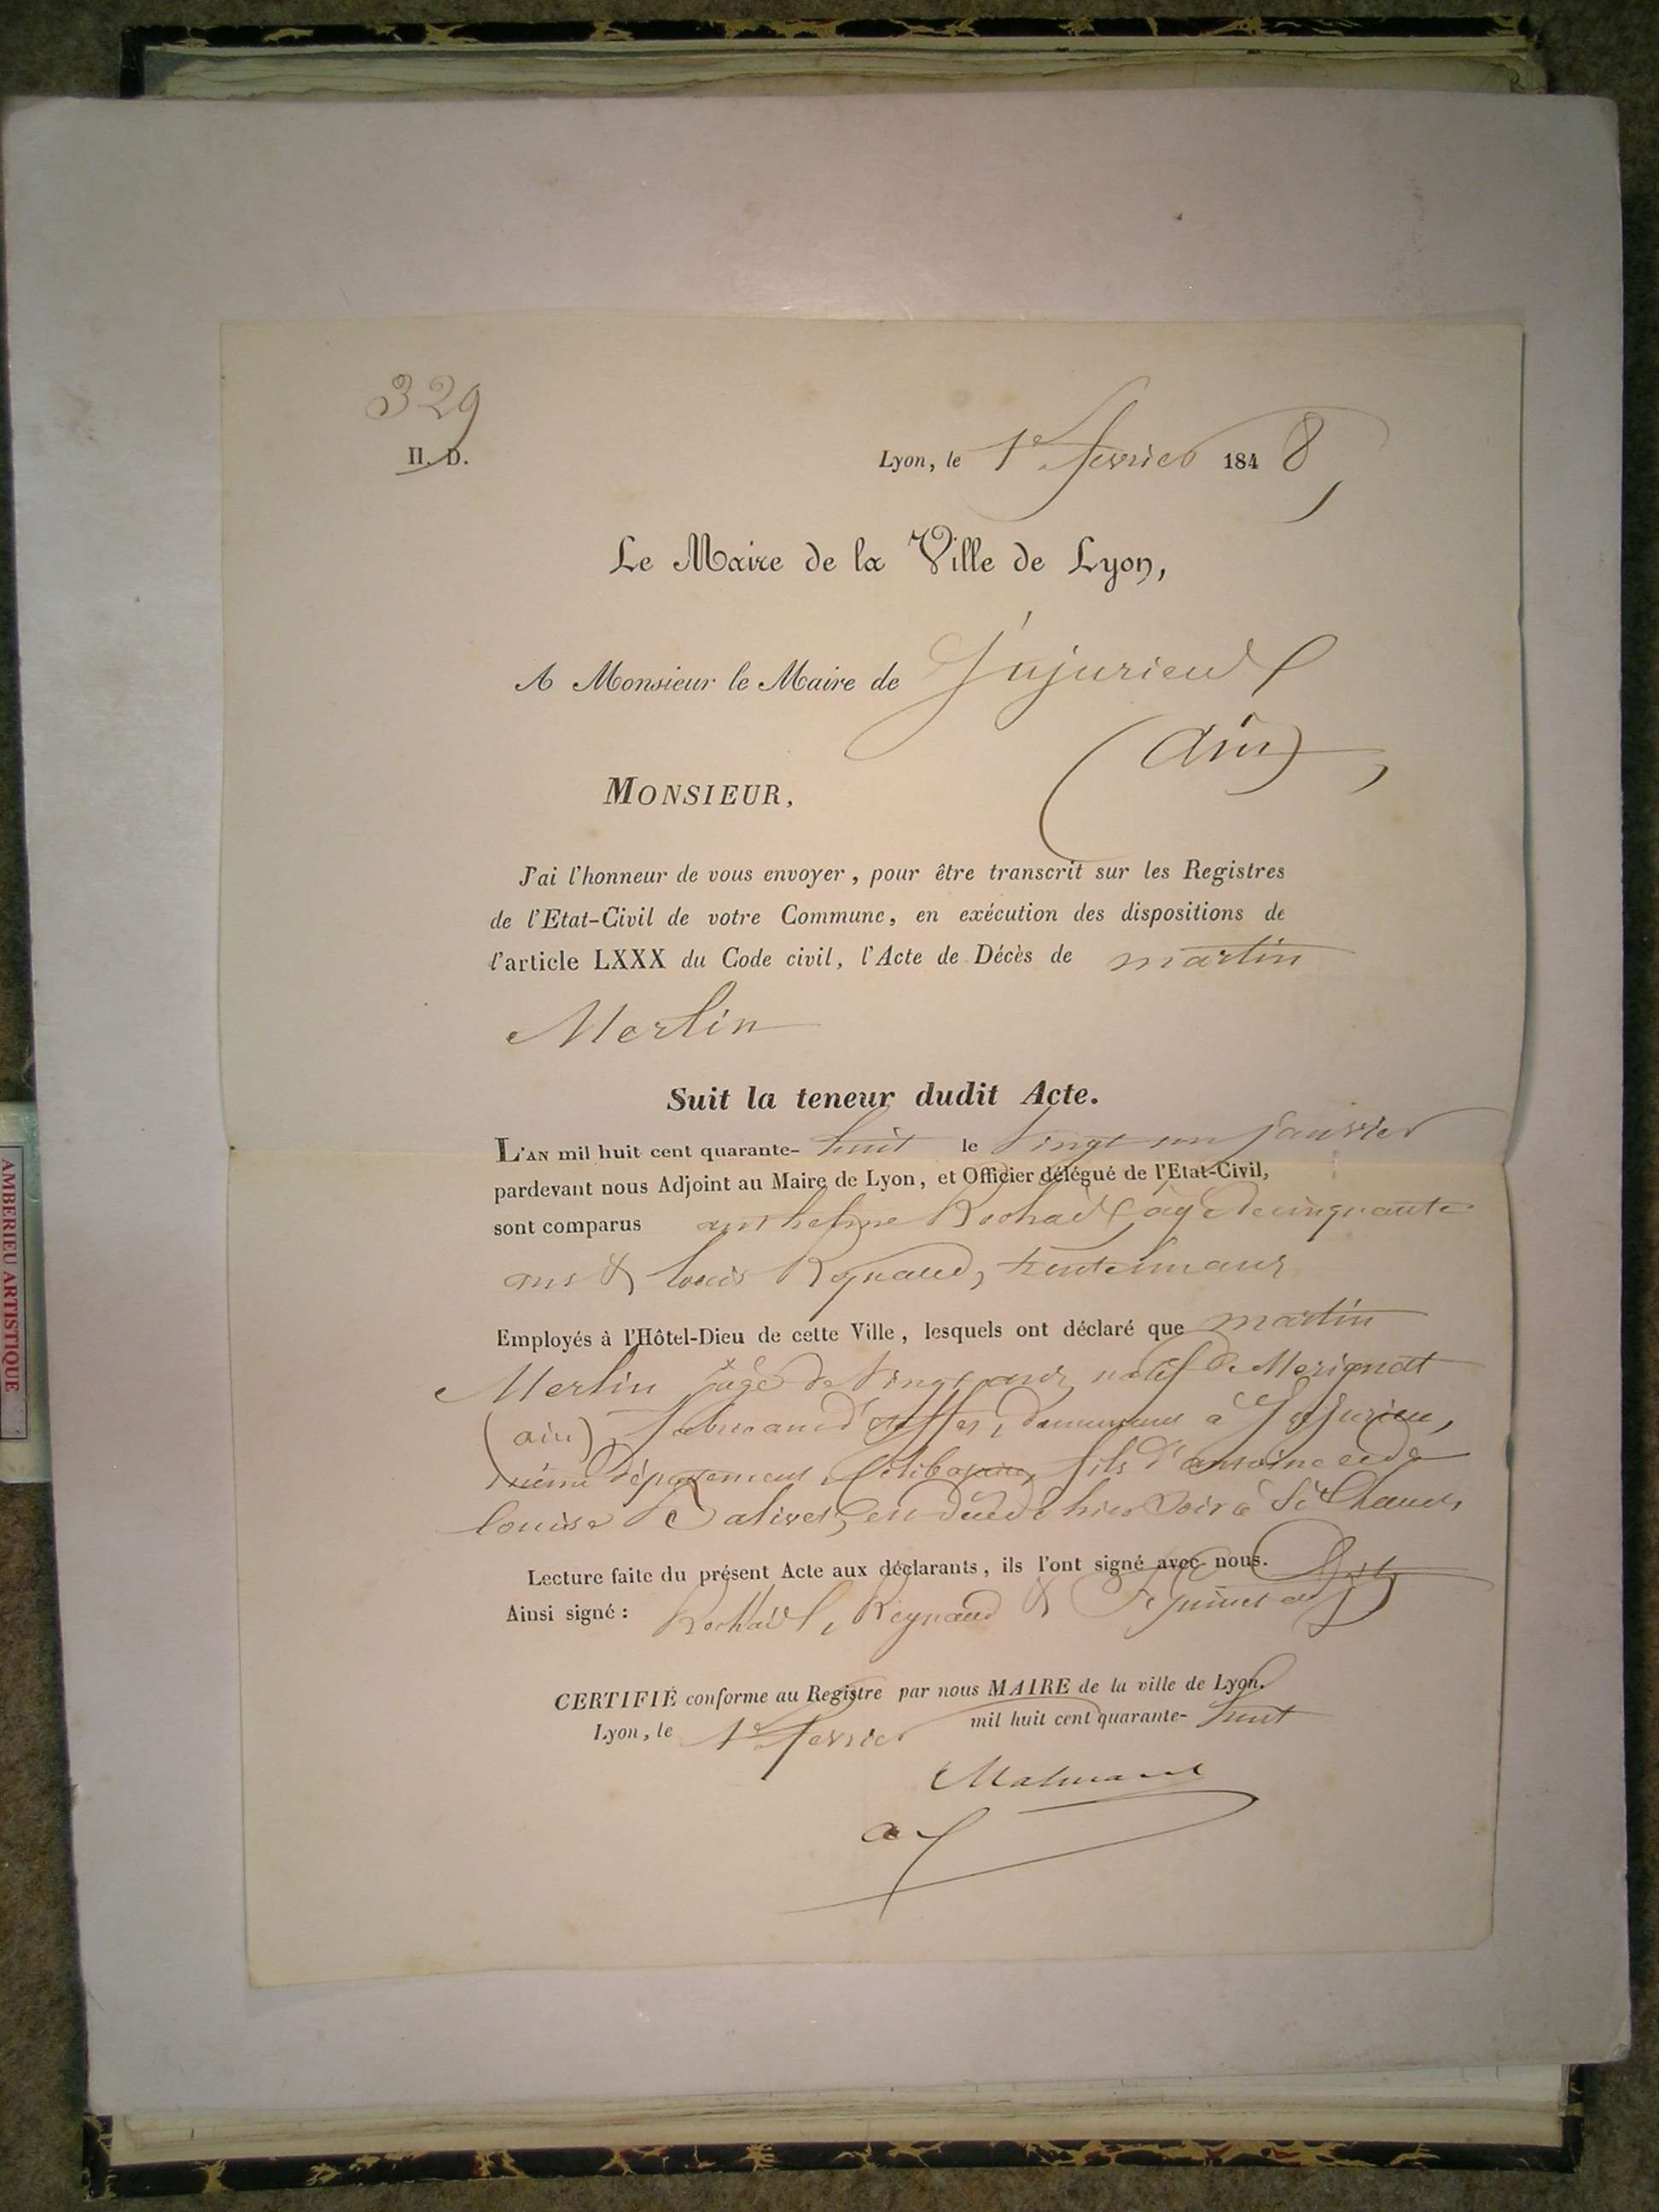 329
H. D.
Lyon, le 1er fevrier 1848,
Le Maire de la Ville de Lyon,
A Monsieur le Maire de Jujurieux
(ain),
MONSIEUR,
J'ai l'honneur de vous envoyer, pour être transcrit sur les Registres
de l'Etat-Civil de votre Commune, en exécution des dispositions de
l'article LXXX du Code civil, l'Acte de Décès de martin
Merlin
Suit la teneur dudit Acte.
L'AN mil huit cent quarante-huit le vingt un janvier
pardevant nous Adjoint au Maire de Lyon, et Officier délégué de l'Etat-Civil,
sont comparus anthelme agé de cinquante
ans & louis Reynaud, trente
Employés à l'Hôtel-Dieu de cette Ville, lesquels ont déclaré que martin
Merlin agé de vingt ans, natif de Merignat
(ain), fabricant d'étoffes, demeurant à Jujurieu,
même département, célibataire, fils d'antoine et de
louise est décédé hier soir à
Lecture faite du présent Acte aux déclarants, ils l'ont signé avec nous.
Ainsi signé : Reynaud &
CERTIFIÉ conforme au Registre par nous MAIRE de la ville de Lyon.
Lyon, le 1er fevrier mil huit cent quarante-huit
AMBERIEU ARTISTIQUE